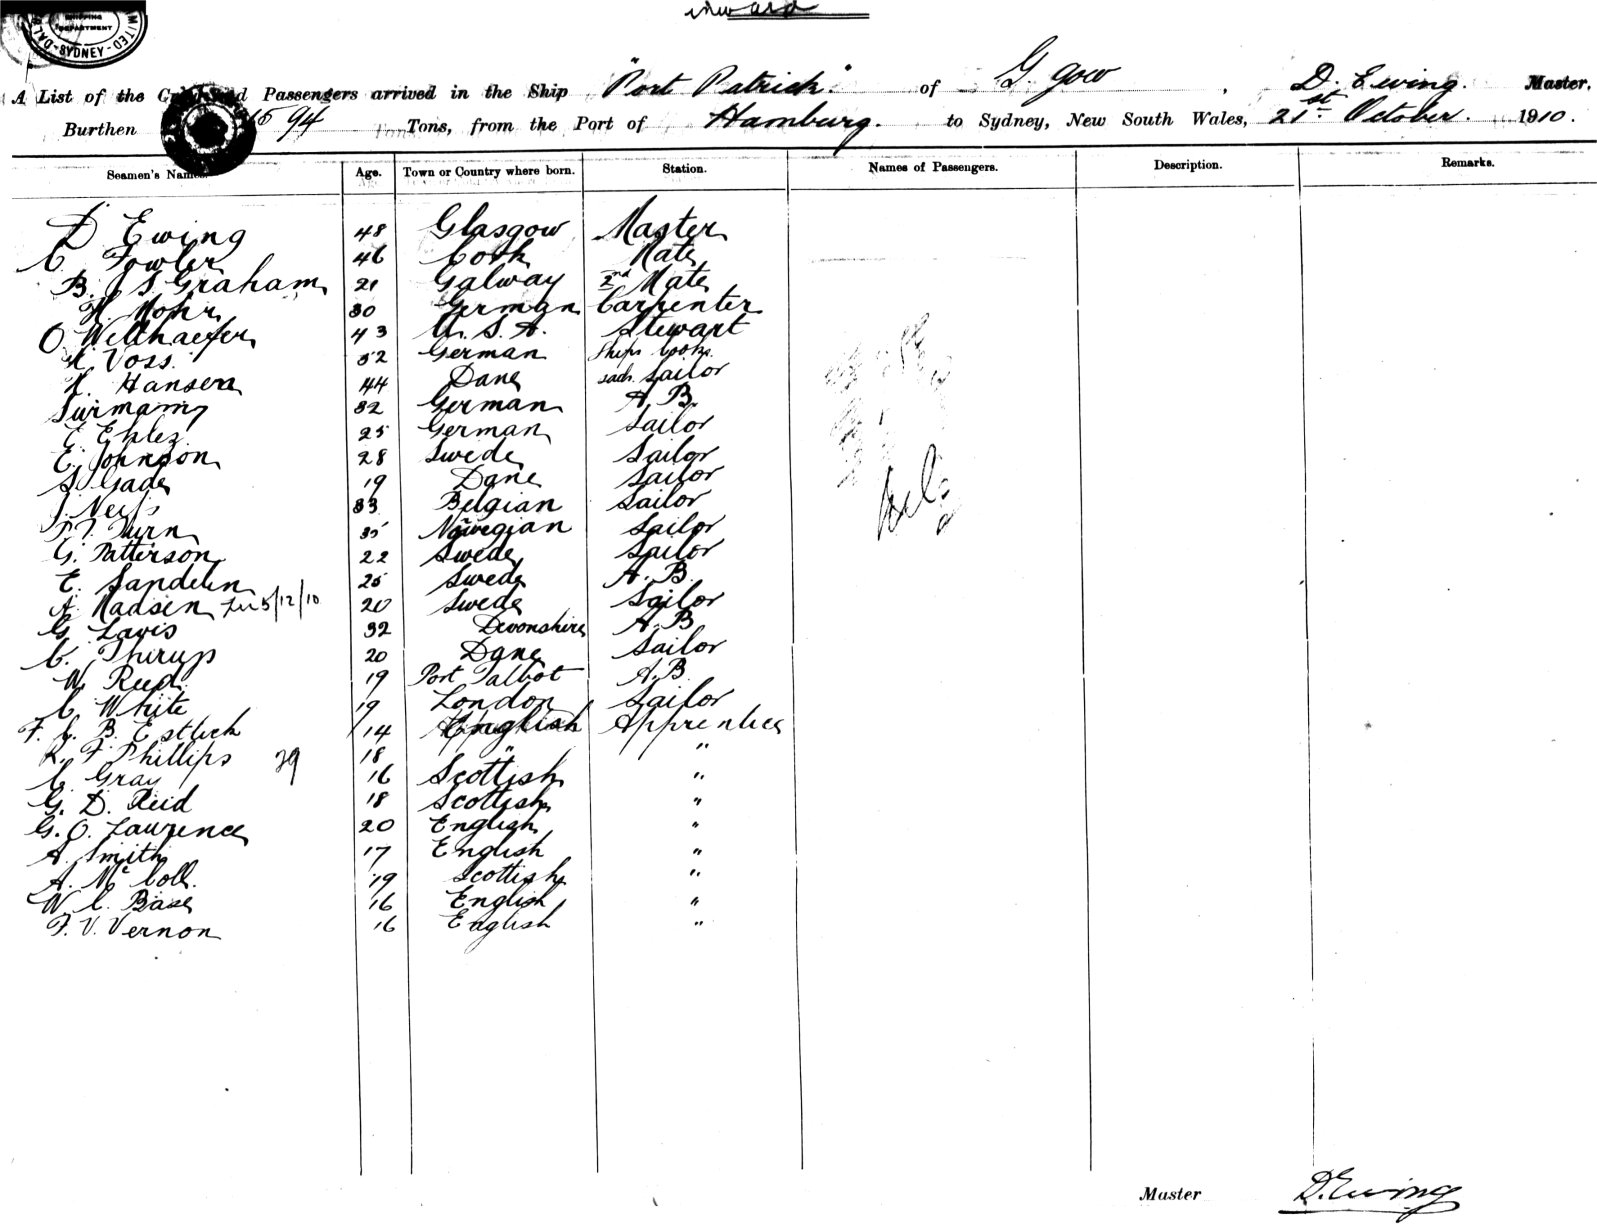 inward
SHIPPING DEPARTMENT LIMITED - SYDNEY - DAL
A List of the Crew and Passengers arrived in the Ship "Port Patrick" of G.gow, D. Ewing. Master.
Burthen 1594 Tons, from the Port of Hamburg. to Sydney, New South Wales, 21st October. 1910.
Seamen's Names. Age. Town or Country where born. Station. Names of Passengers. Description. Remarks.
D Ewing 48 Glasgow Master
C. Fowler 46 Cork Mate
B. J S Graham 21 Galway 2nd Mate
H. Mohr 30 German Carpenter
O Welthaefer 43 U. S. A. Stewart
H. Voss. 52 German Ships Cook.
H. Hansen 44 Dane Sailor
Surmann 32 German A. B.
E. Ehlez 25 German Sailor
E. Johnson 28 Swede Sailor
S. Gade 19 Dane Sailor
J. 33 Belgian Sailor
35 Norwegian Sailor
G. Patterson 22 Swede Sailor
E. Sandelin 25 Swede A. B.
A. Madsen 5/12/10 20 Swede Sailor
G. Lavis 32 Devonshire A. B
C. Thirup 20 Dane Sailor
W. Reed. 19 Port Talbot A. B.
C. White 19 London Sailor
F. C. B. Estlick 14 English Apprentice
R. F. Phillips 18 " "
29
C. Gray 16 Scottish "
G. D. Reid 18 Scottish "
G. O. Laurence 20 English "
A. Smith 17 English "
A. McColl. 19 Scottish "
W. C. Base 16 English "
F. V. Vernon 16 English "
Master D. Ewing